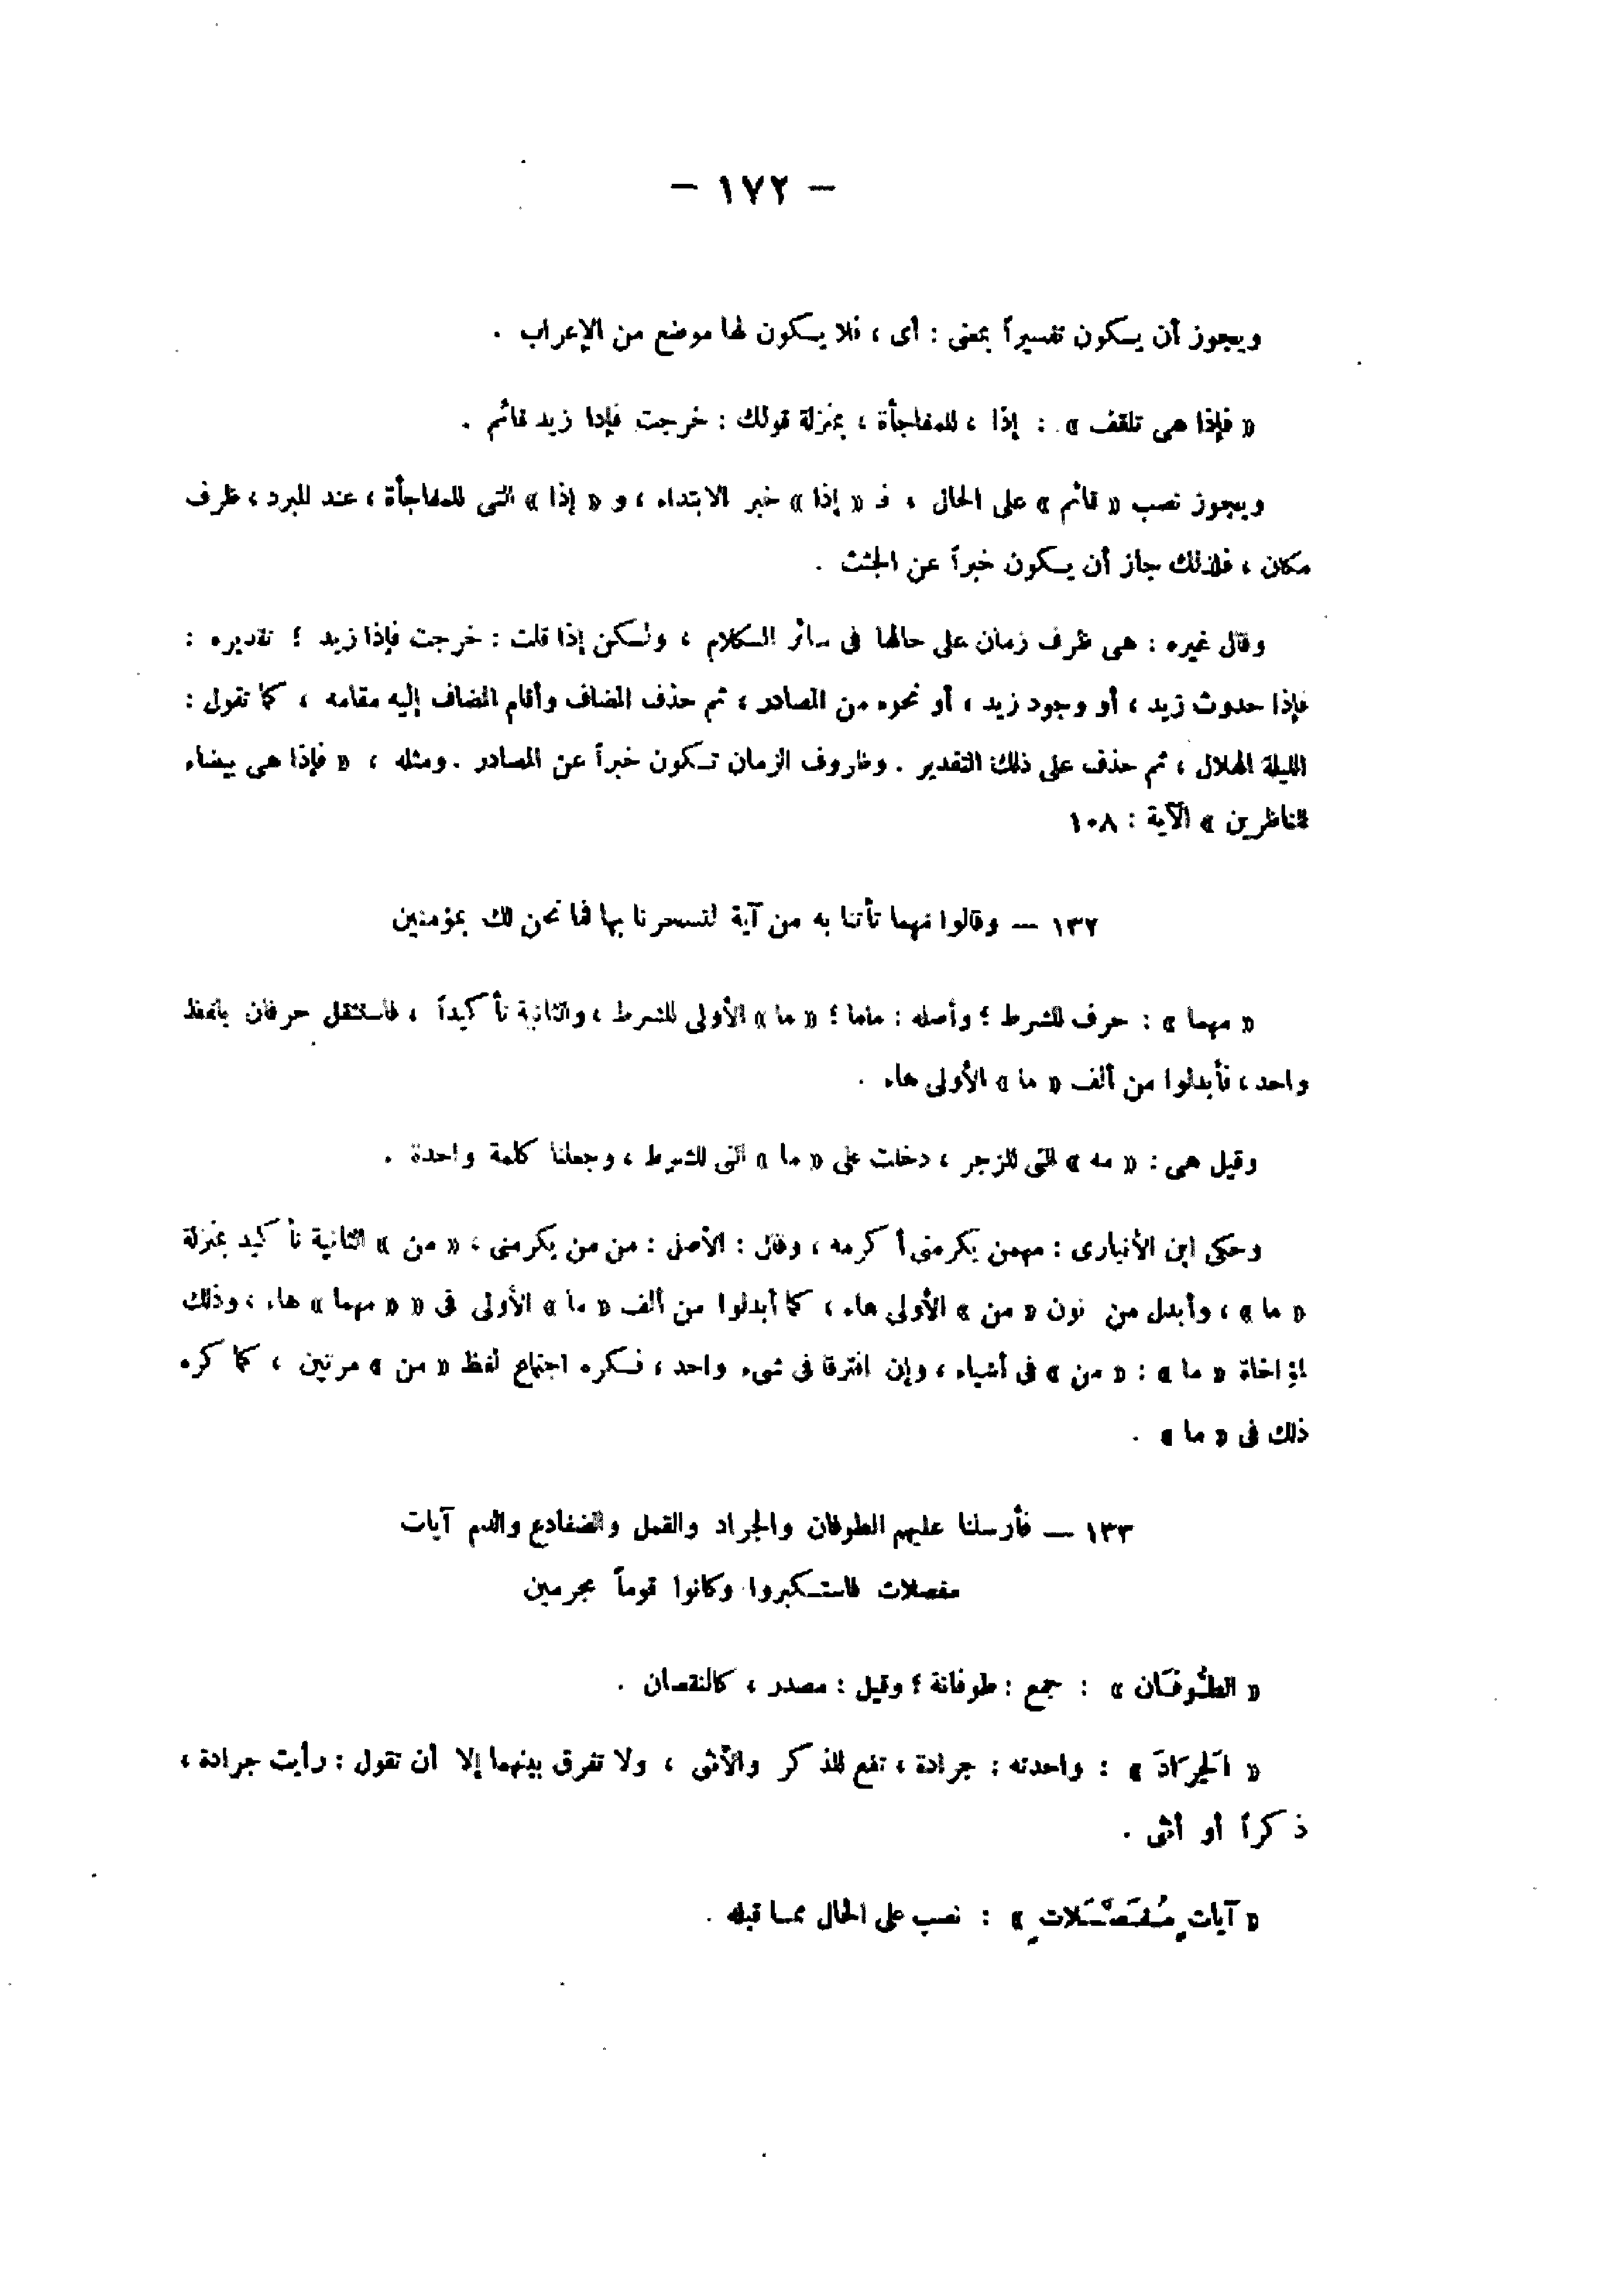 — ١٧٢ —
ويجوز أن يكون تفسيراً بمعنى : أى ، فلا يكون لها موضع من الإعراب .
« فإذا هى تلقف » : إذا ، للمفاجأة ، بمنزلة قولك : خرجت فإدا زيد قائم .
ويجوز نصب « قائم » على الحال ، فـ « إذا » خبر الابتداء ، و « إذا » التى للمفاجأة ، عند المبرد ، ظرف
مكان ، فلذلك جاز أن يكون خبراً عن الجثث .
وقال غيره : هى ظرف زمان على حالها فى سائر الكلام ، ولكن إذا قلت : خرجت فإذا زيد ؛ تقديره :
فإذا حدوث زيد ، أو وجود زيد ، أو نحوه من المصادر ، ثم حذف المضاف وأقام المضاف إليه مقامه ، كما تقول :
الليلة الهلال ، ثم حذف على ذلك التقدير . وظروف الزمان تكون خبراً عن المصادر . ومثله ، « فإذا هى بيضاء
للناظرين » الآية : ١٠٨
١٣٢ — وقالوا مهما تأتنا به من آية لتسحرنا بها فما نحن لك بمؤمنين
« مهما » : حرف للشرط ؛ وأصله : ماما ؛ « ما » الأولى للشرط ، والثانية تأكيداً ، فاستثقل حرفان بلفظ
واحد ، فأبدلوا من ألف « ما » الأولى هاء .
وقيل هى : « مه » التى للزجر ، دخلت على « ما » التى للشرط ، وجعلنا كلمة واحدة .
وحكى ابن الأنبارى : مهمن يكرمنى أكرمه ، وقال : الأصل : من من يكرمنى ، « من » الثانية تأكيد بمنزلة
« ما » ، وأبدل من نون « من » الأولى هاء ، كما أبدلوا من ألف « ما » الأولى فى « « مهما » هاء ، وذلك
لمؤاخاة « ما » : « من » فى أشياء ، وإن افترقا فى شىء واحد ، فكره اجتماع لفظ « من » مرتين ، كما كره
ذلك فى « ما » .
١٣٣ — فأرسلنا عليهم الطوفان والجراد والقمل والضفادع والدم آيات
مفصلات فاستكبروا وكانوا قوماً مجرمين
« الطُّوفَان » : جمع : طوفانة ؛ وقيل : مصدر ، كالنقصان .
« الَجرَادَ » : واحدته : جرادة ، تقع للذكر والأنثى ، ولا تفرق بينهما إلا أن تقول : رأيت جرادة ،
ذكراً أو أنثى .
« آيات مُفَصَّلات » : نصب على الحال مما قبله .